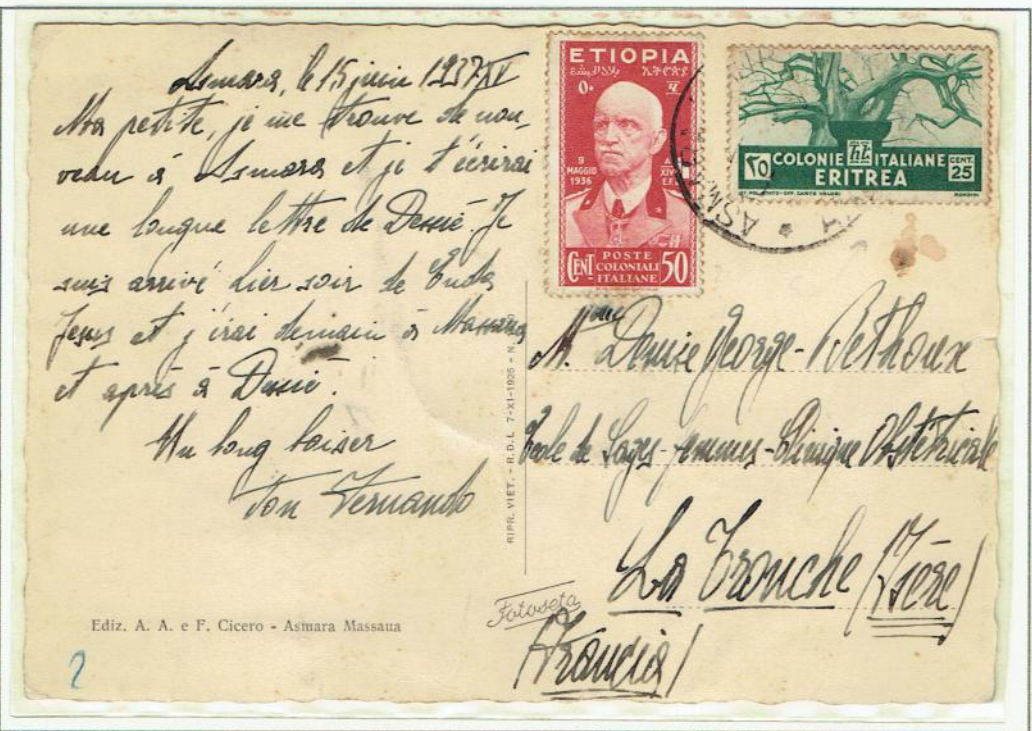 Asmara, le 15 juin 1937 XV
Ma petite, je me trouve de nou-
veau à Asmara et je t'écrirai
une longue lettre de Dessié. Je
suis arrivé hier soir de Enda
Jesus et j'irai demain à Massaua
et après à Dessié.
Un long baiser
ton Fernando
Ediz. A. A. e F. Cicero - Asmara Massaua
2
RIPR. VIET. - R.D.L. 7-XI-1925 - N.
Fotoseta
ETIOPIA
9
MAGGIO
1936
A.
XIV
E.F.
POSTE
CENT COLONIALI 50
ITALIANE
٢٥ COLONIE ITALIANE CENT. 25
ERITREA
IST. POLIGRAFICO - OFF. CARTE VALORI
ASMARA
Mme Denise George-Béthoux
École de Sages-femmes-Clinique Obstétricale
La Tronche (Isère)
(Francia)